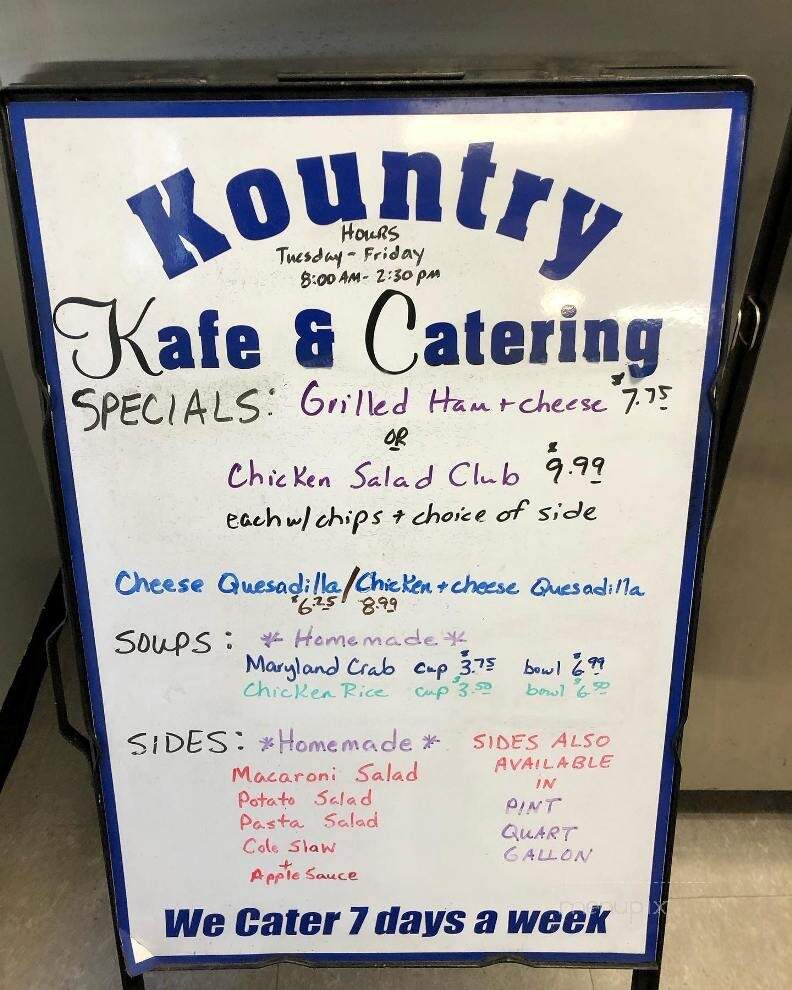 Kountry
HOURS
Tuesday - Friday
8:00 AM - 2:30 PM
Kafe & Catering
SPECIALS: Grilled Ham + cheese $7.75
OR
Chicken Salad Club $9.99
each w/ chips + choice of side
Cheese Quesadilla / Chicken + cheese Quesadilla
$6.25 8.99
SOUPS: * Homemade *
Maryland Crab cup $3.75 bowl $6.99
Chicken Rice cup $3.50 bowl $6.50
SIDES: * Homemade *
Macaroni Salad
Potato Salad
Pasta Salad
Cole Slaw
+
Apple Sauce
SIDES ALSO
AVAILABLE
IN
PINT
QUART
GALLON
We Cater 7 days a week
menupix